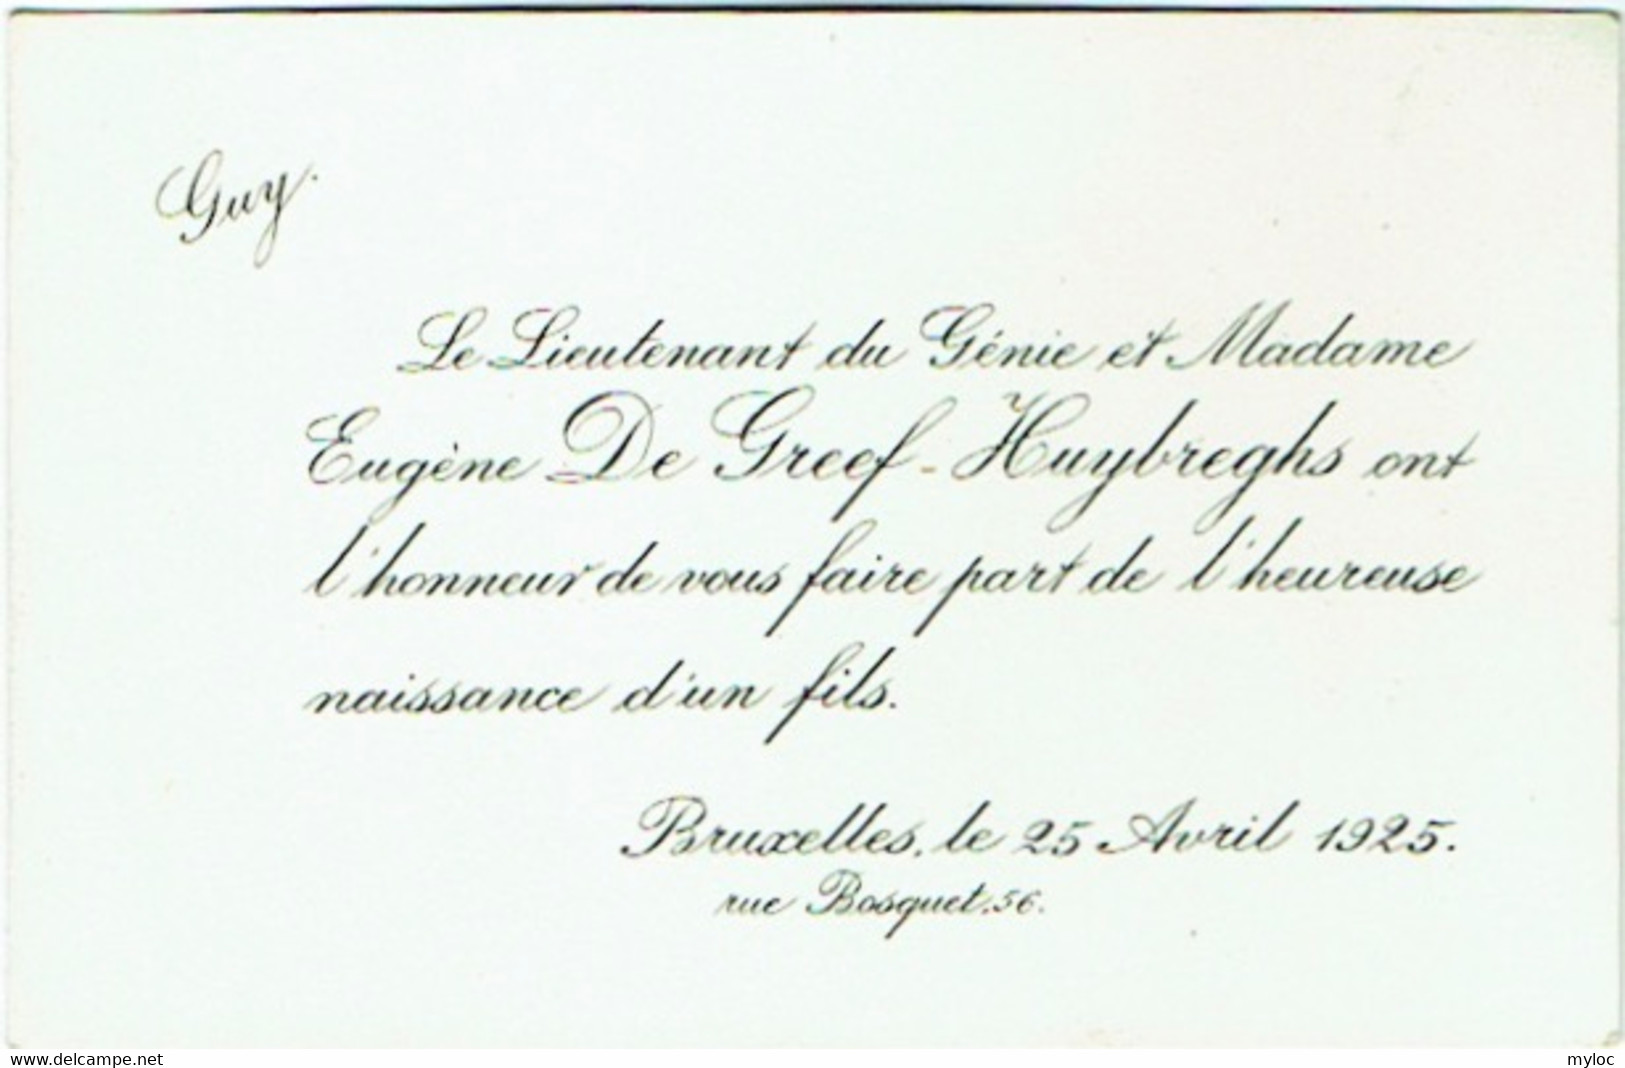 Guy.
Le Lieutenant du Génie et Madame
Eugène De Greef-Huybreghs ont
l'honneur de vous faire part de l'heureuse
naissance d'un fils.
Bruxelles, le 25 Avril 1925.
rue Bosquet.56.
www.delcampe.net
myloc